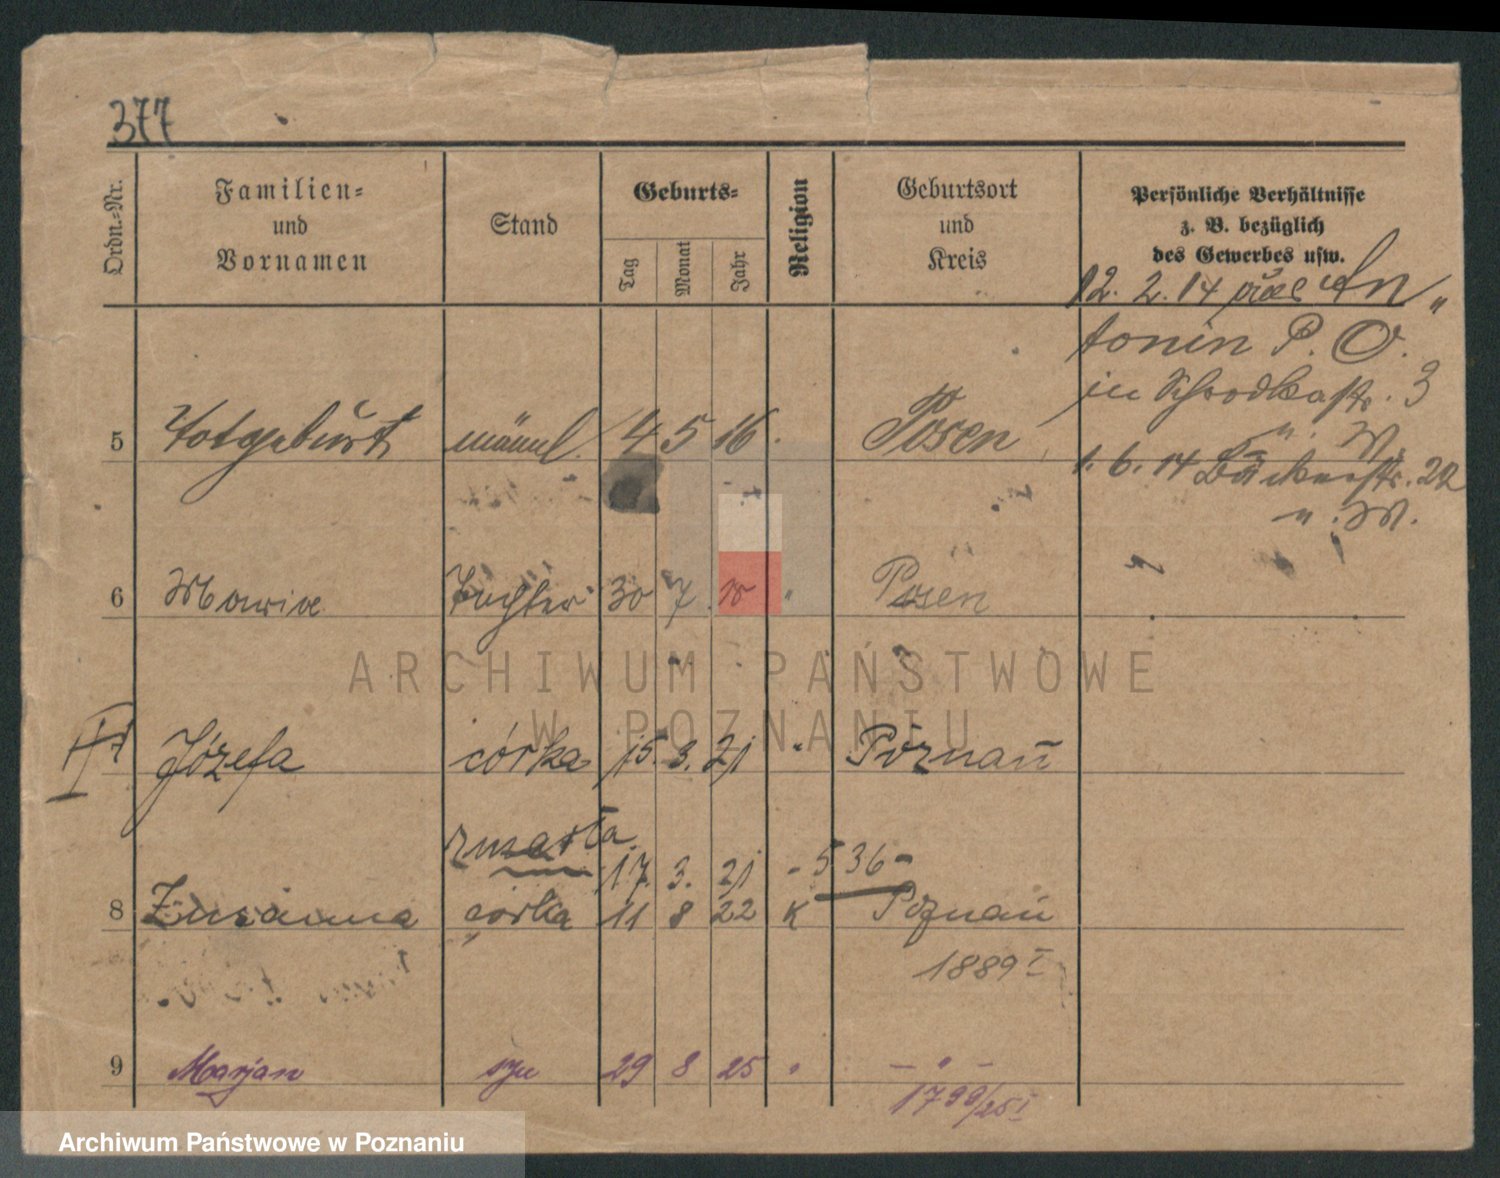 377
Ordn.-Nr.
Familien-
und
Vornamen
Stand
Geburts-
Tag
Monat
Jahr
Religion
Geburtsort
und
Kreis
Persönliche Verhältnisse
z. B. bezüglich
des Gewerbes usw.
12. 2. 14 An„
tonin P. O.
in Schrodkastr. 3
5 Totgeburt männl. 4 5 16. Posen
u. W.
1. 6. 14 Bäckerstr. 22
u. W.
6 Maria Tochter 30 7 18 " Posen
ARCHIWUM PAŃSTWOWE
W POZNANIU
7 Józefa córka 15. 3. 21 " Poznań
zmarła 17. 3. 21 - 536 -
8 Zuzanna córka 11 8 22 K Poznań
1889 I
9 Marjan syn 29 8 25 " - " -
1799/25 I
Archiwum Państwowe w Poznaniu